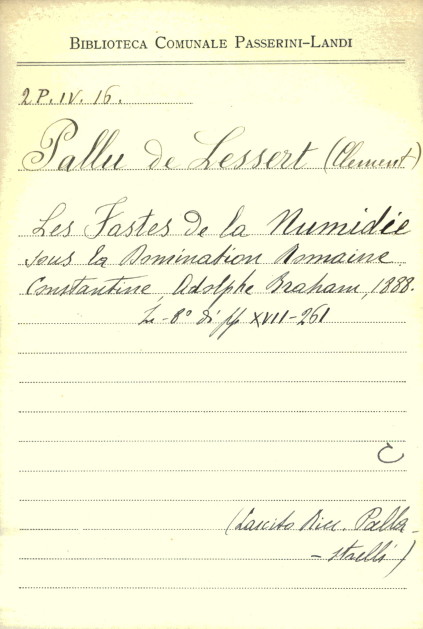 BIBLIOTECA COMUNALE PASSERINI-LANDI
2 P. IV. 16.
Pallu de Lessert (Clement)
Les Fastes de la Numidie
sous la Domination Romaine.
Constantine, Adolphe Braham, 1888.
In-8° di pp XVII-261
C
(Lascito Ricc. Palla-
-strelli)